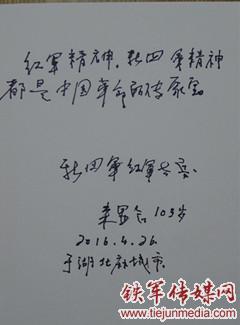 红军精神，新四军精神
都是中国革命的传家宝
新四军红军老兵
103岁
2016.4.26.
于湖北麻城市
铁军传媒网
www.tiejunmedia.com